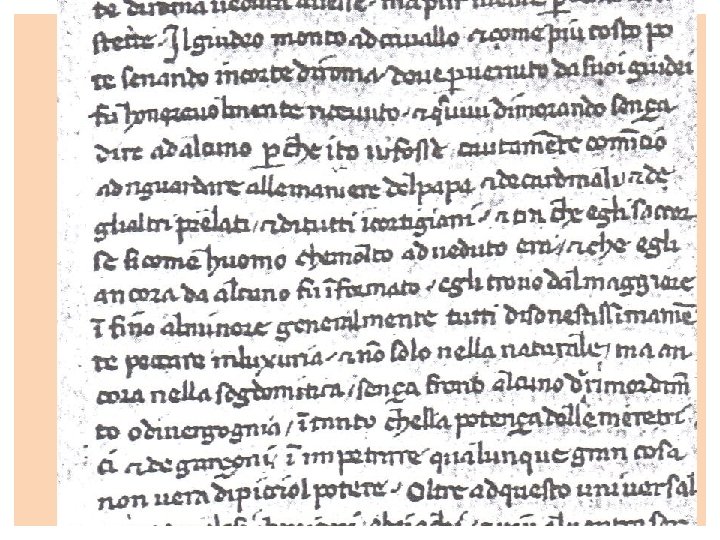 sterte. Il giudeo monto ad cauallo ⁊ come più tosto po
te senando incorte diroma / doue ꝑuenuto da suoi giudei
fu honoreuolmente riceuuto. ⁊ quiui dimorando sença
dire ad alcuno ꝑ che ito ui fosse cautamēte comīcio
ad riguardare alle maniere del papa ⁊ de cardinali / ⁊ de
glialtri prelati / ⁊ di tutti icortigiani / ⁊ che egli saccor
se si come huomo che molto ad ueduto era / ⁊ che egli
ancora da alcuno fu īformato / egli trouo dal maggiore
ī fino al minore generalmente tutti disonestissimamē
te peccare in luxuria / ⁊ nō solo nella naturale / ma an
cora nella sogdomitica / sença freno alcuno di rimordim̄
to o diuergognia / ī tanto che lla potença delle meretri
ci ⁊ de garçoni / ī impetrare qualunque gran cosa
non uera di picciol potere. Oltre ad questo uniuersal